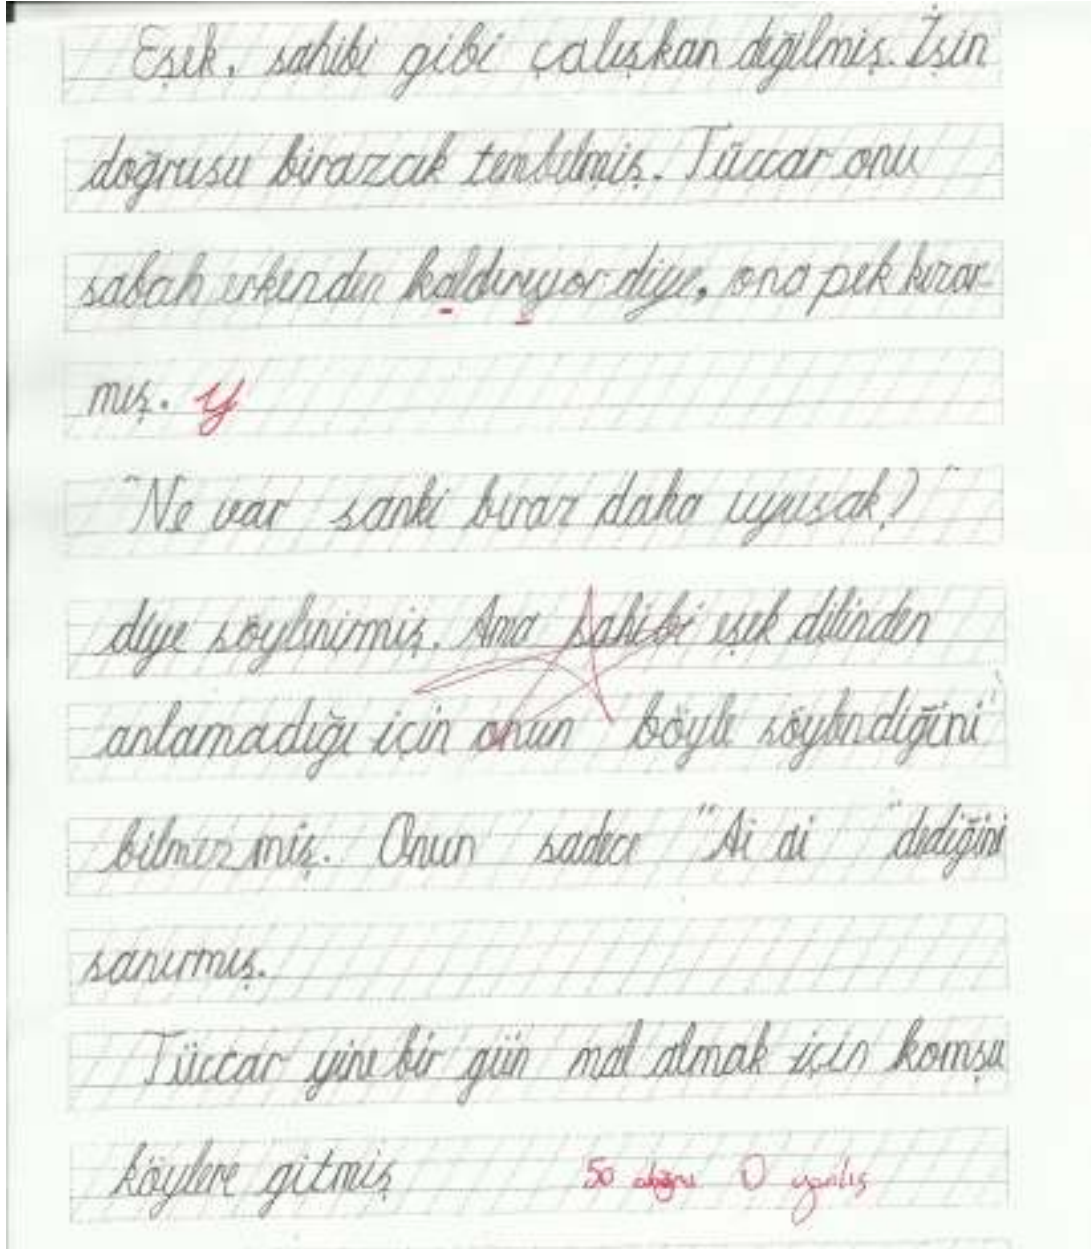 Eşek, sahibi gibi çalışkan değilmiş. İşin
doğrusu birazcık tembelmiş. Tüccar onu
sabah erkenden kaldırıyor diye, ona pek kızar-
mış. y
"Ne var sanki biraz daha uyusak?"
diye söylenirmiş. Ama sahibi eşek dilinden
anlamadığı için onun böyle söylendiğini
bilmezmiş. Onun sadece "Ai ai" dediğini
sanırmış.
Tüccar yine bir gün mal almak için komşu
köylere gitmiş
50 doğru 0 yanlış